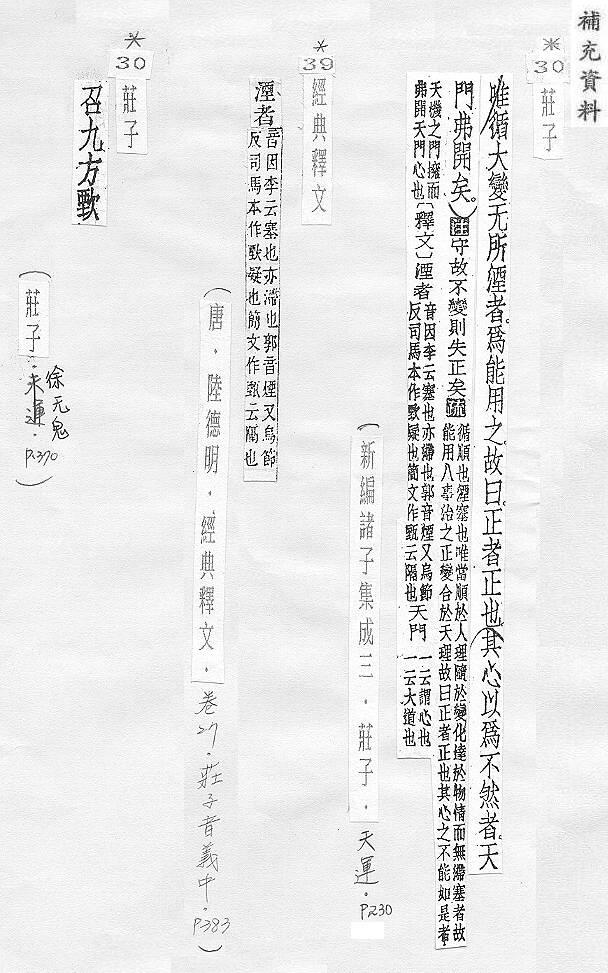 補充資料
＊
30
莊子
唯循大變无所湮者為能用之故曰正者正也其心以為不然者天
門弗開矣。
注守故不變則失正矣疏
循順也湮塞也唯當順於人理隨於變化達於物情而無滯塞者故
能用八事治之正變合於天理故曰正者正也其心之不能如是者
天機之門擁而
弗開天門心也
〔釋文〕湮者
音因李云塞也亦滯也郭音煙又烏節
反司馬本作歅疑也簡文作甄云隔也
天門
一云謂心也
一云大道也
(新編諸子集成三．莊子．天運．P230
＊
39
經典釋文
湮者
音因李云塞也亦滯也郭音煙又烏節
反司馬本作歅疑也簡文作甄云隔也
(唐．陸德明．經典釋文．卷27．莊子音義中．P383)
＊
30
莊子
召九方歅
(莊子．天運．P370)
徐无鬼